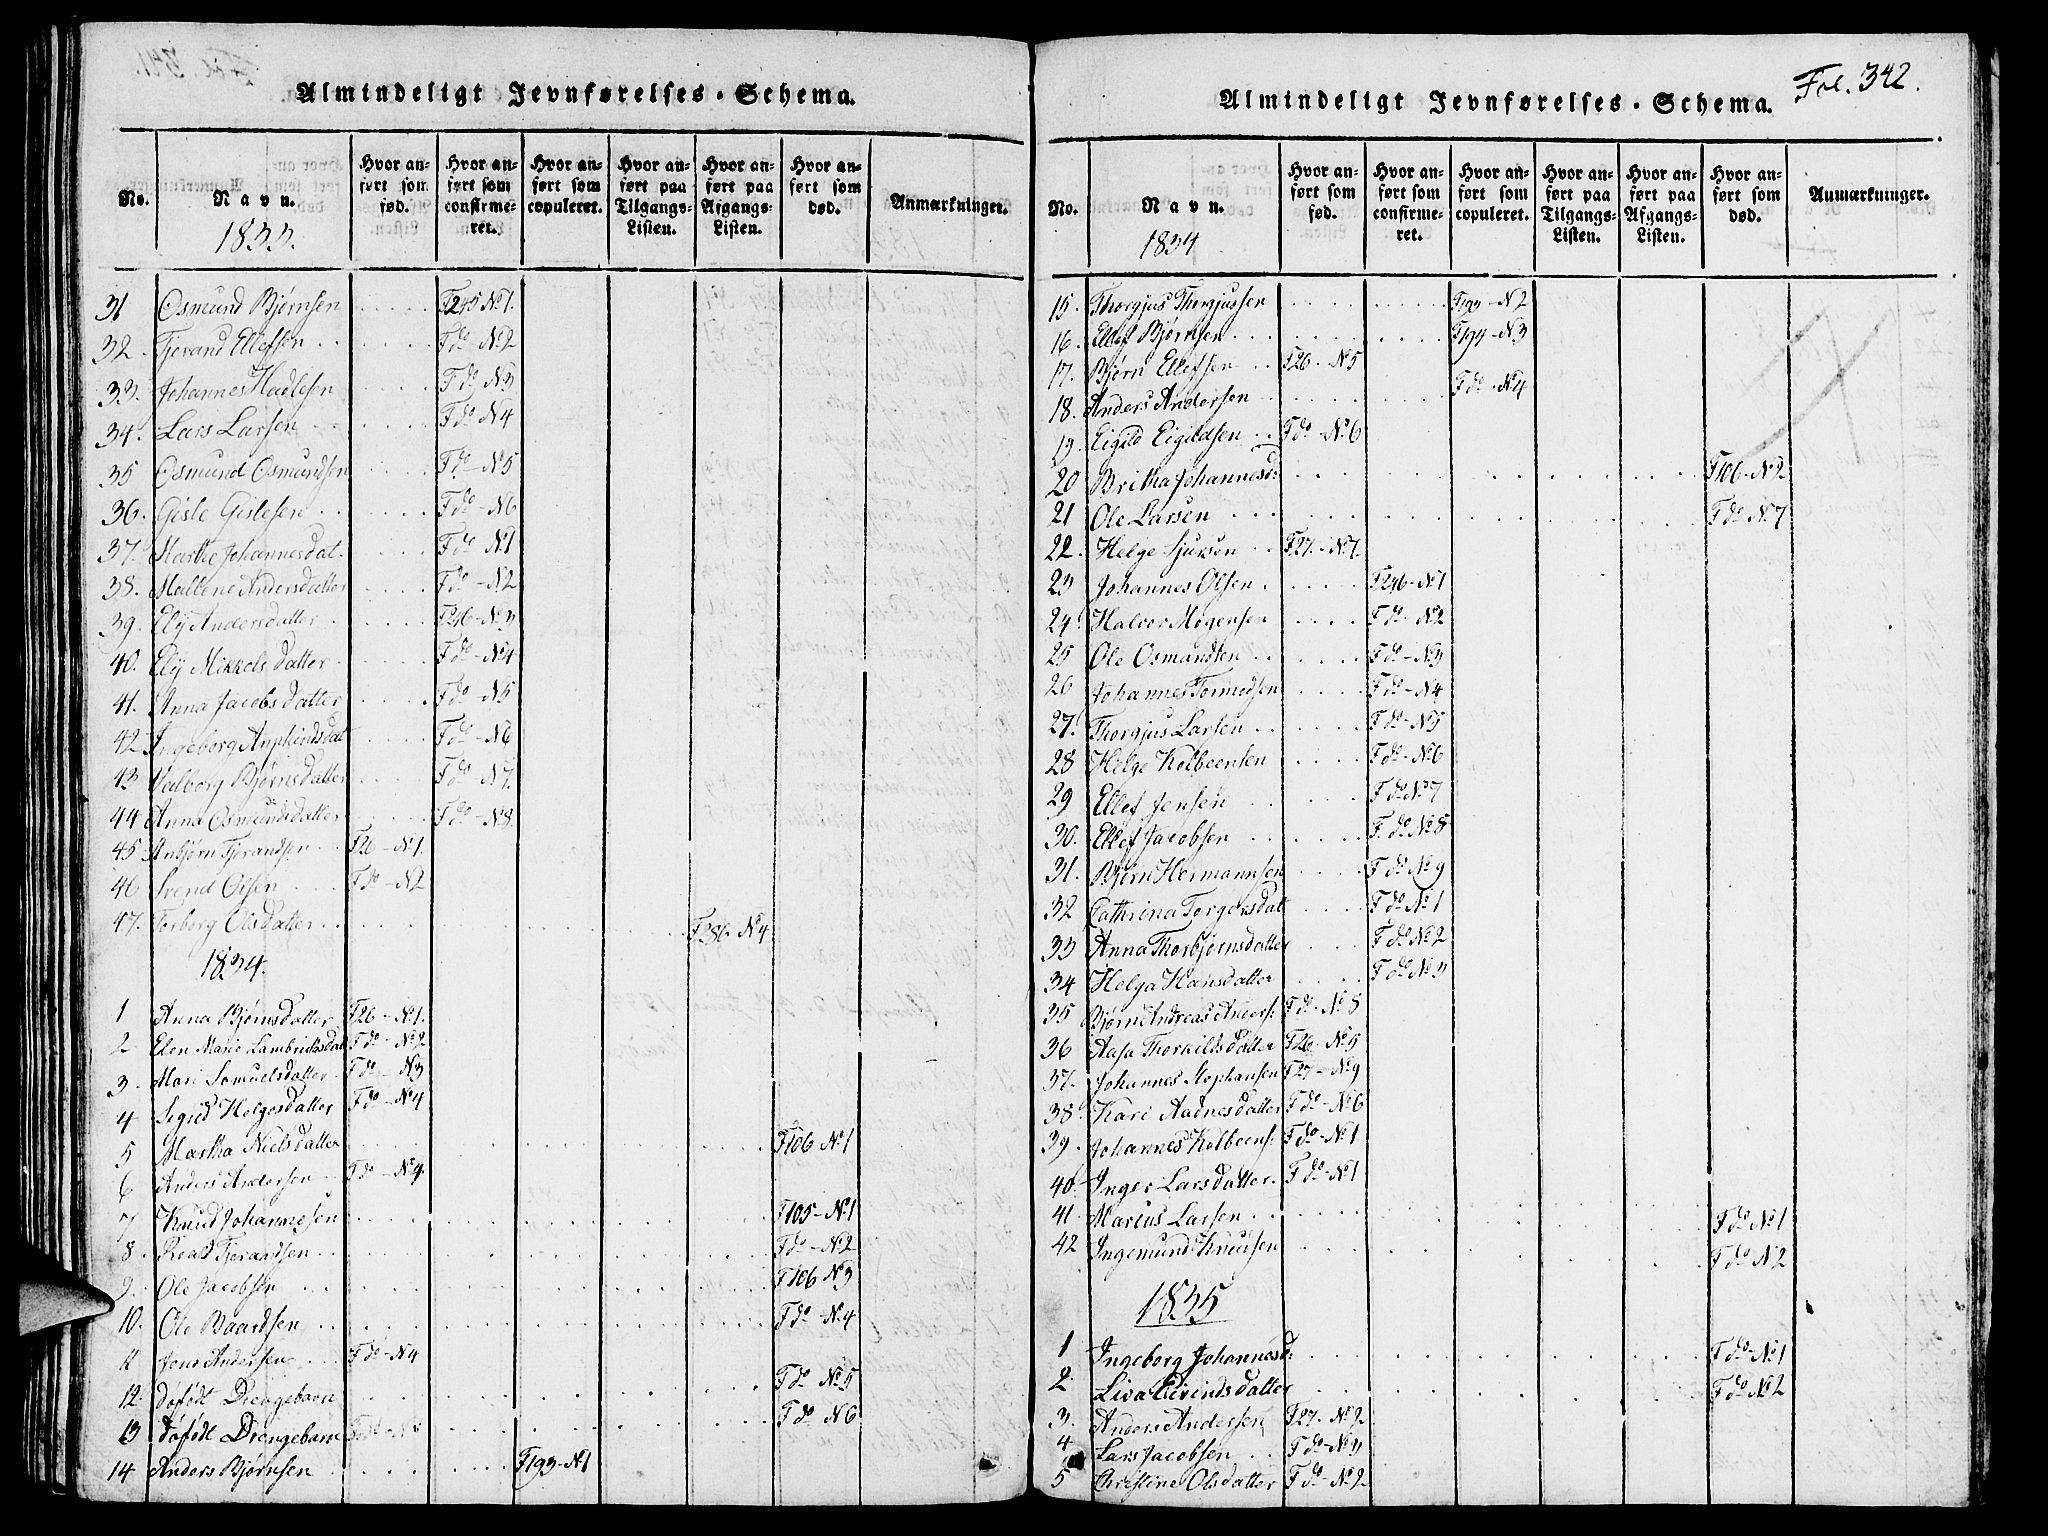 Almindeligt Jevnførelses-Schema.
No. Navn. Hvor anført som fød. Hvor anført som confirmeret. Hvor anført som copuleret. Hvor anført paa Tilgangs-Listen. Hvor anført paa Afgangs-Listen. Hvor anført som død. Anmærkninger.
1833.
31 Osmund Bjørnsen F245 No 1.
32. Tjerand Elefsen F do No 2
33. Johannes Hadlesen F do No 3
34. Lars Larsen F do No 4
35 Osmund Osmundsen F do - No 5
36. Gisle Gislesen F do - No 6
37. Marthe Johannesdat. F do No 1
38. Mallene Andersdatter F do - No 2
39. Elij Andersdatter F246 - No 3
40. Elij Mikkels datter F do - No 4
41. Anna Jacobs datter F do - No 5
42 Ingeborg Anphindsdat F do - No 6
43 Valborg Bjørnsdatter F do - No 7.
44 Anna Osmundsdatter F do - No 8
45 Anbjørn Tjerandsen F26 - No 1.
46 Svend Olsen F do - No 2
47. Torborg Olsdatter F286 - No 4
1834.
1 Anna Bjørnsdatter F26 - No 1.
2 Elen Marie Lambrektsdat F do - No 2
3. Mari Samuelsdatter F do - No 3
4 Sigrid Helgesdatter F do - No 4
5 Martha Nielsdatter F106 - No 1
6 Anders Andersen F do - No 4
7 Knud Johannesen F105 - No 1
8. Reall Tjerandsen F do - No 2
9. Ole Jacobsen F106 No 3
10. Ole Baardsen F do - No 4
11 Jens Andersen F do - No 4
12. døfødt Drengebarn F do No 5
13 døfødt Drengebarn F do No 6
14 Anders Bjørnsen F193 - No 1
Almindeligt Jevnførelses-Schema.
Fol. 342.
No. Navn. Hvor anført som fød. Hvor anført som confirmeret. Hvor anført som copuleret. Hvor anført paa Tilgangs-Listen. Hvor anført paa Afgangs-Listen. Hvor anført som død. Anmærkninger.
1834
15. Thorgjus Thorgjussen F193 - No 2
16. Ellef Bjørnsen F194 - No 3
17. Bjørn Ellefsen F26 - No 5
18. Anders Andersen F do - No 4
19. Eigild Eigildsen F do - No 6
20 Britha Johannesd: F106 - No 2
21 Ole Larsen F do No 7
22. Helge Sjursen F27 - No 7.
23 Johannes Olsen F246 - No 1
24. Halvor Mogensen F do - No 2
25 Ole Osmundsen F do - No 3
26 Johannes Tormodsen F do - No 4
27. Thorgjus Larsen F do - No 5
28 Helge Kolbeensen F do - No 6
29 Ellef Jensen F do No 7
30. Ellef Jacobsen F. do No 8
31. Bjørn Hermannsen F do - No 9
32 Cathrina Torgersdat F do No 1
33 Anna Thorbjørnsdatter F do No 2
34 Helga Hansdatter F do No 3
35 Bjørn Andreas Anders: F do - No 8
36 Aasa Thorkildsdatter F26 - No 5
37. Johannes Stephansen F27 - No 9
38. Kari Aadnesdatter F do - No 6
39. Johannes Kolbeens: F do - No 1
40. Inger Larsdatter. F do - No 1
41. Marius Larsen F do No 1
42 Ingemund Knudsen F do No 2
1835
1 Ingeborg Johannesd: F do - No 1
2. Liva Eivindsdatter F do No 2
3. Anders Andersen F27 - No 2
4 Lars Jacobsen F do - No 3
5 Christine Olsdatter F do - No 2